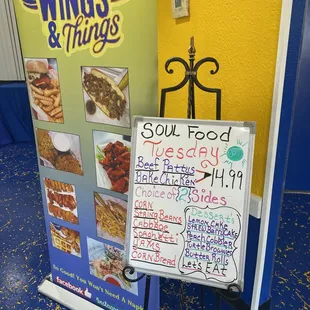 WINGS
& Things
SOUL FOOD
Tuesday
Beef Pattus
Bake Chicken
14.99
Choice of 2 Sides
CORN
STRING BEANS
Cabbage
Spaghetti
YAMS
CORN BREAD
Desserts
Lemon Cake
Peach Cobbler
Turtle Brownie
Butter Rolls
Let's EAT
So Good You'll Need A Nap!
facebook